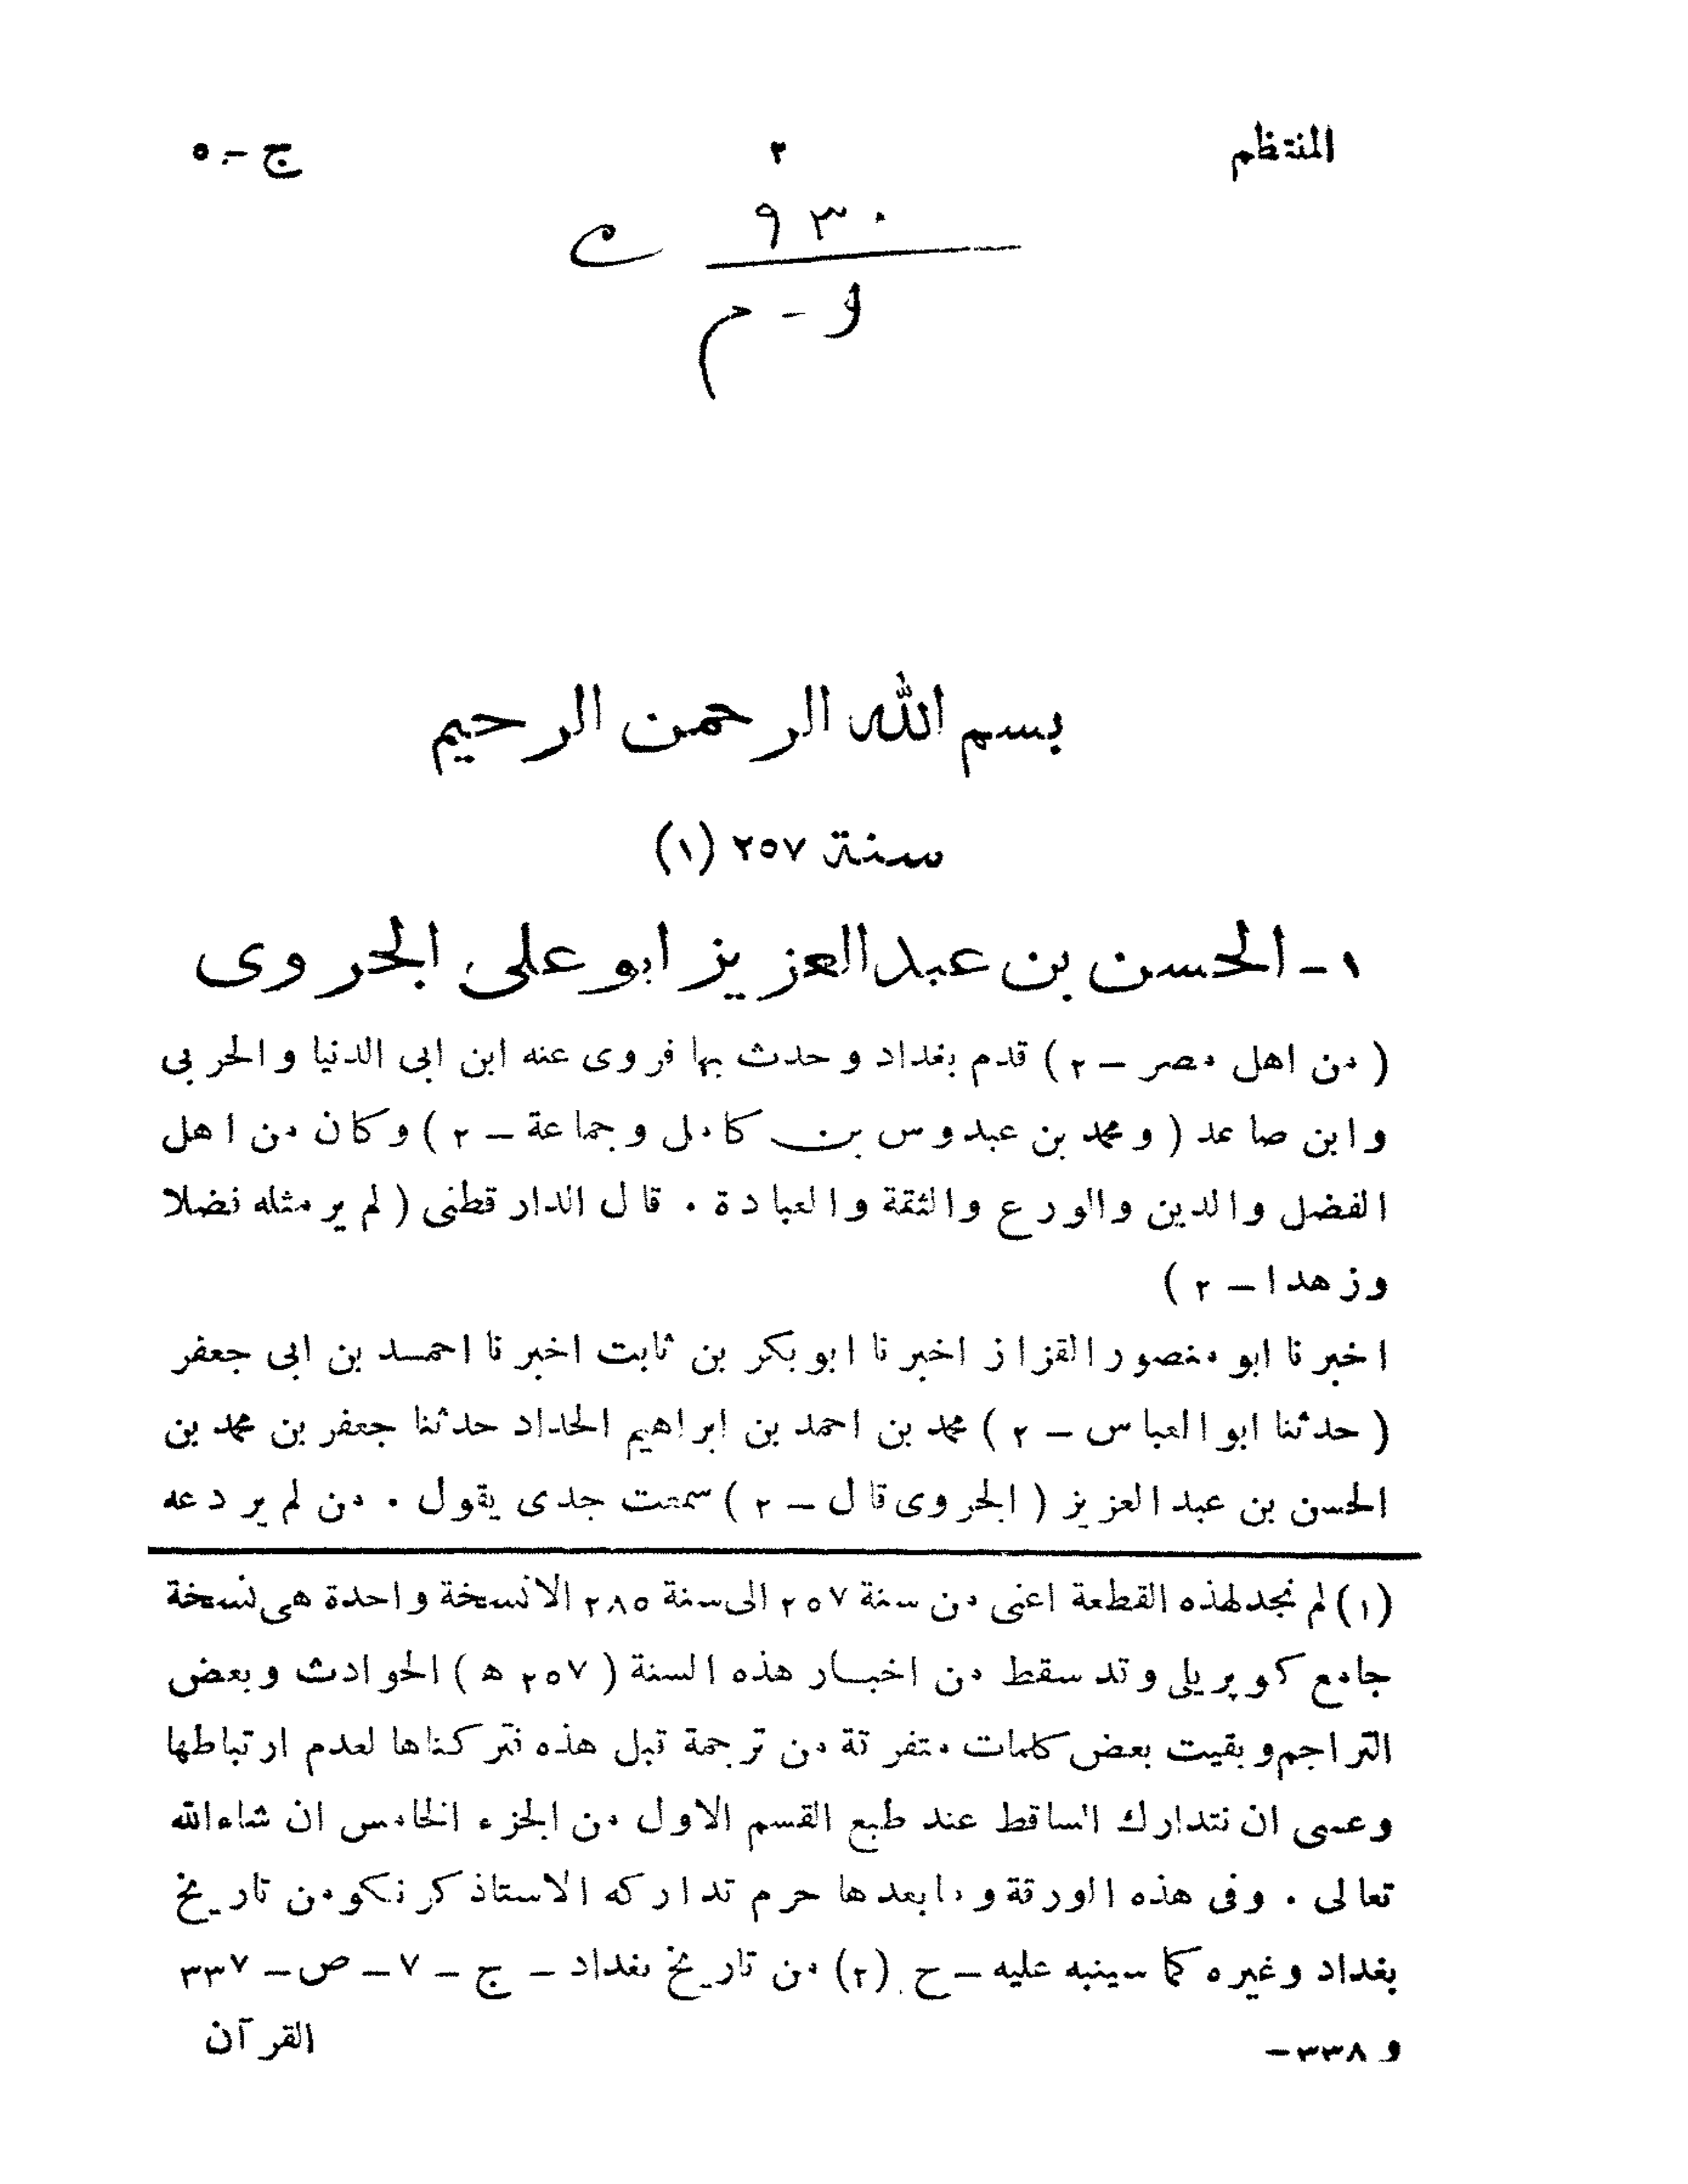 المنتظم ٢ ج-٥
٩٣٠
بسم الله الرحمن الرحيم
سنة ٢٥٧ (١)
١- الحسن بن عبد العزيز ابو على الجروى
( من اهل مصر – ٢ ) قدم بغداد وحدث بها فروى عنه ابن ابى الدنيا والحربى
وابن صاعد ( ومحمد بن عبدوس بن كامل وجماعة – ٢ ) وكان من اهل
الفضل والدين والورع والثقة والعبادة . قال الدارقطنى ( لم ير مثله فضلا
وزهدا – ٢ )
اخبرنا ابو منصور القزاز اخبرنا ابو بكر بن ثابت اخبرنا احمد بن ابى جعفر
( حدثنا ابو العباس – ٢ ) محمد بن احمد بن ابراهيم الحداد حدثنا جعفر بن محمد بن
الحسن بن عبد العزيز ( الجروى قال – ٢ ) سمعت جدى يقول . من لم يردعه
(١) لم نجد لهذه القطعة اعنى من سنة ٢٥٧ الى سنة ٢٨٥ الا نسخة واحدة هى نسخة
جامع كوپريلى وقد سقط من اخبار هذه السنة ( ٢٥٧ ه ) الحوادث وبعض
التراجم وبقيت بعض كلمات متفرقة من ترجمة قبل هذه فتركناها لعدم ارتباطها
وعسى ان نتدارك الساقط عند طبع القسم الاول من الجزء الخامس ان شاء الله
تعالى . وفى هذه الورقة وما بعدها خرم تداركه الاستاذ كرنكو من تاريخ
بغداد وغيره كما سينبه عليه – ح (٢) من تاريخ بغداد – ج – ٧ – ص – ٣٣٧
و ٣٣٨ –
القرآن